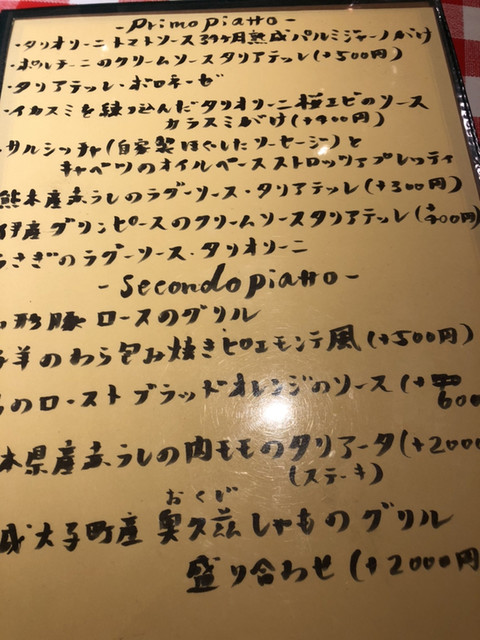 - Primo piatto -
・タリオリーニトマトソース39ヶ月熟成パルミジャーノがけ
・ポルチーニのクリームソースタリアテッレ(+500円)
・タリアテッレ・ボロネーゼ
・イカスミを練り込んだタリオリーニ桜エビのソース
カラスミがけ(+400円)
サルシッチャ(自家製ほぐしたソーセージ)と
キャベツのオイルベースストロッツァプレッティ
熊本産赤うしのラグーソース・タリアテッレ(+300円)
伊産グリンピースのクリームソースタリアテッレ(+400円)
うさぎのラグーソース・タリオリーニ
- secondo piatto -
形豚ロースのグリル
羊のわら包み焼きピエモンテ風(+500円)
のローストブラッドオレンジのソース(+600
本県産赤うしの内モモのタリアータ(+2000
(ステーキ)
おくじ
城大子町産 奥久慈しゃものグリル
盛り合わせ(+2000円)